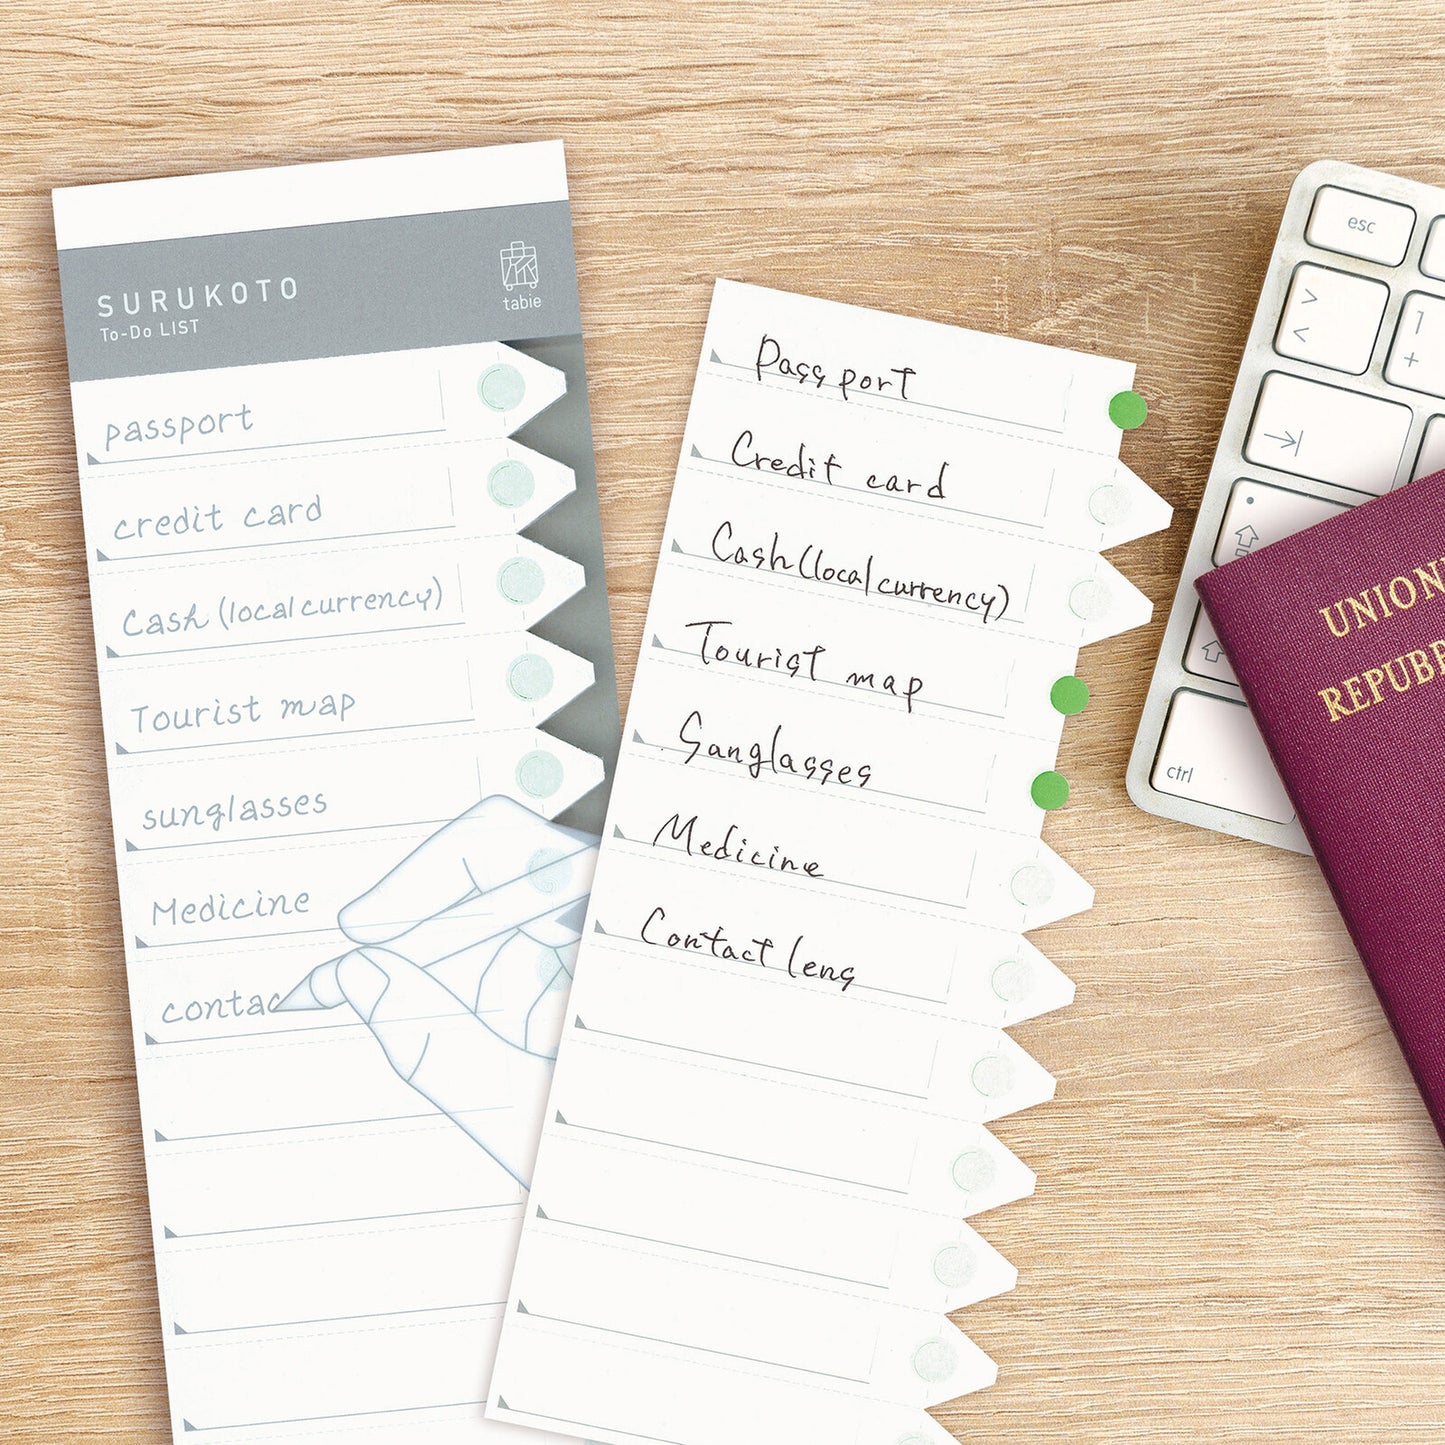 SURUKOTO
To-Do LIST
tabie
passport
credit card
Cash (local currency)
Tourist map
sunglasses
Medicine
contac
Passport
Credit card
Cash (local currency)
Tourist map
Sunglasses
Medicine
Contact lens
esc
>
<
1
+
ctrl
UNION
REPUBB